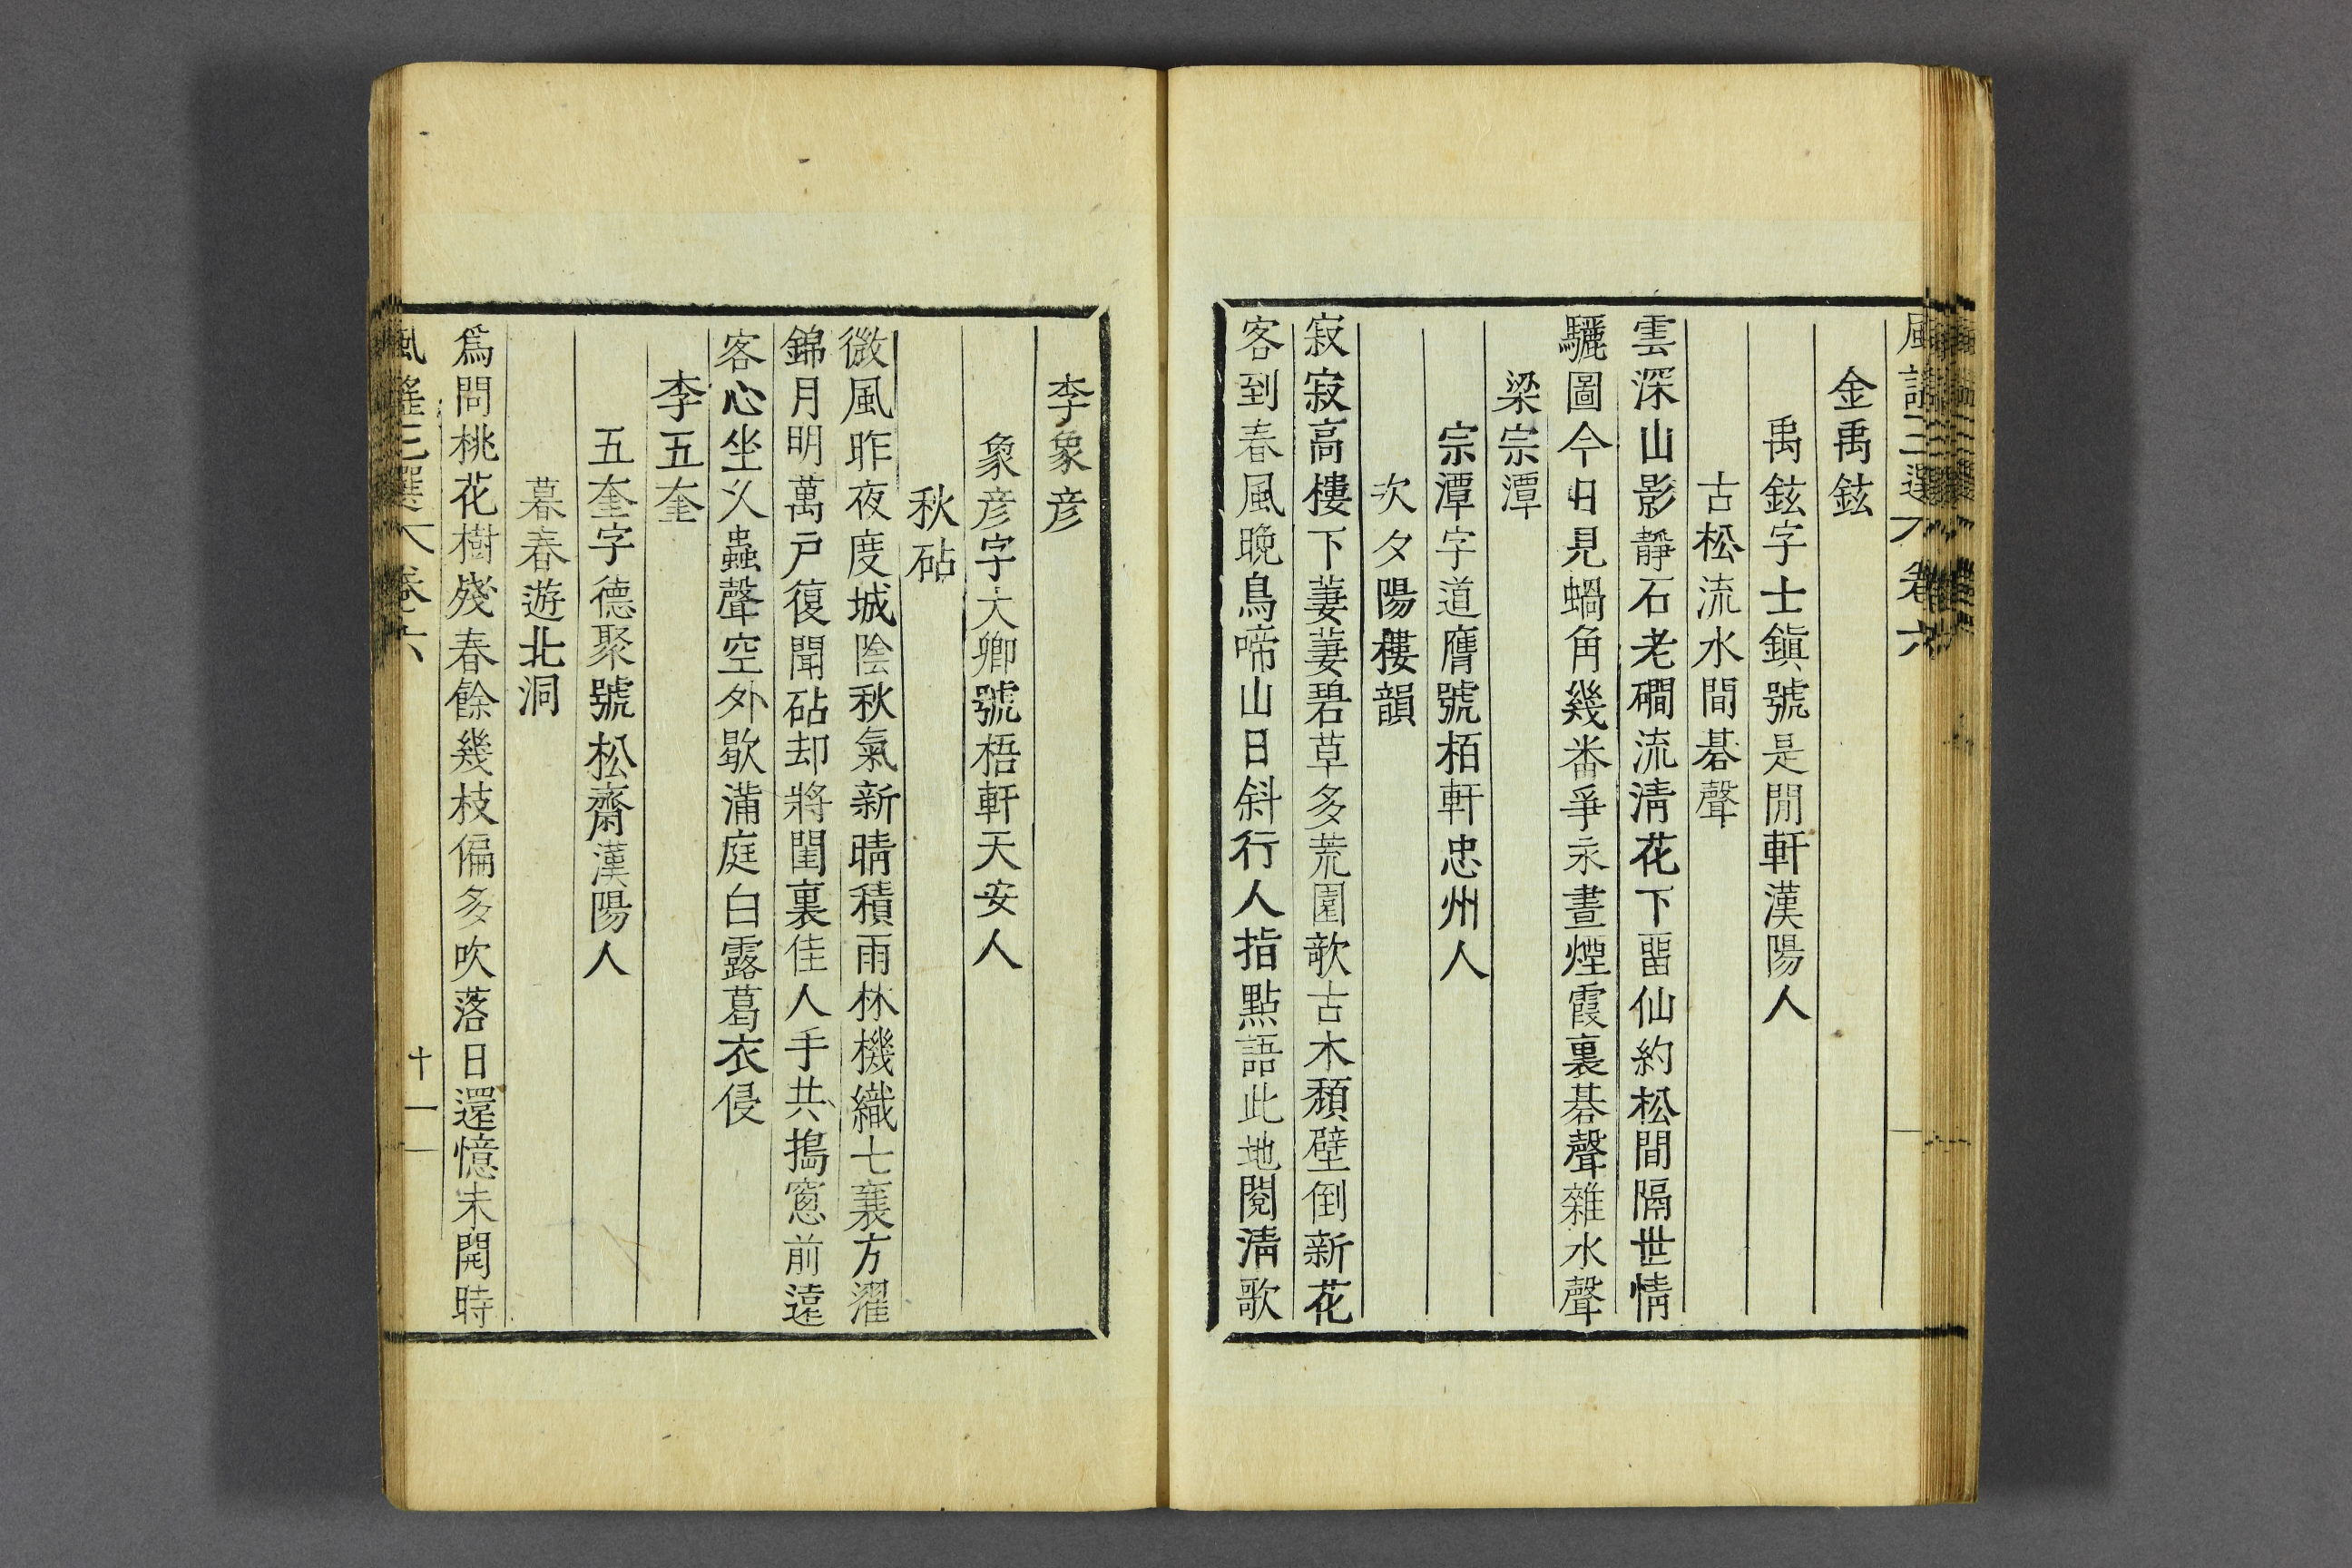 風謠三選 卷六
金禹鉉
禹鉉字士鎭號是閒軒漢陽人
古松流水間碁聲
雲深山影靜石老磵流淸花下畱仙約松間隔世情
驪圖今日見蝸角幾番爭永晝煙霞裏碁聲雜水聲
梁宗潭
宗潭字道膺號栢軒忠州人
次夕陽樓韻
寂寂高樓下萋萋碧草多荒園欹古木頹壁倒新花
客到春風晩鳥啼山日斜行人指點語此地閱淸歌
李象彦
象彦字大卿號梧軒天安人
秋砧
微風昨夜度城陰秋氣新晴積雨林機織七襄方濯
錦月明萬戶復聞砧却將閨裏佳人手共搗窓前遠
客心坐久蟲聲空外歇滿庭白露葛衣侵
李五奎
五奎字德聚號松齋漢陽人
暮春遊北洞
爲問桃花樹殘春餘幾枝偏多吹落日還憶未開時
風謠三選 卷六 十一